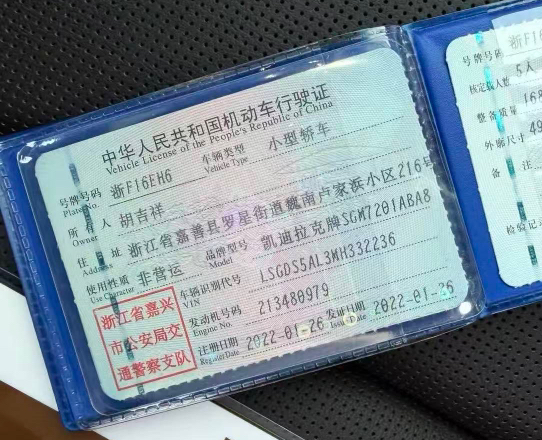 中华人民共和国机动车行驶证
Vehicle License of the People's Republic of China
号牌号码 浙F16EH6 车辆类型 小型轿车
Plate No. Vehicle Type
所有人 胡吉祥
Owner
住址 浙江省嘉善县罗星街道魏南卢家浜小区216号
Address
使用性质 非营运 品牌型号 凯迪拉克牌SGM7201ABA8
Use Character Model
浙江省嘉兴
市公安局交
通警察支队
车辆识别代号 LSGDS5AL3MH332236
VIN
发动机号码 213480979
Engine No.
注册日期 2022-01-26 发证日期 2022-01-26
Register Date Issue Date
号牌号码 浙F16
核定载人数 5人
整备质量 168
外廓尺寸 49
备注
检验记录